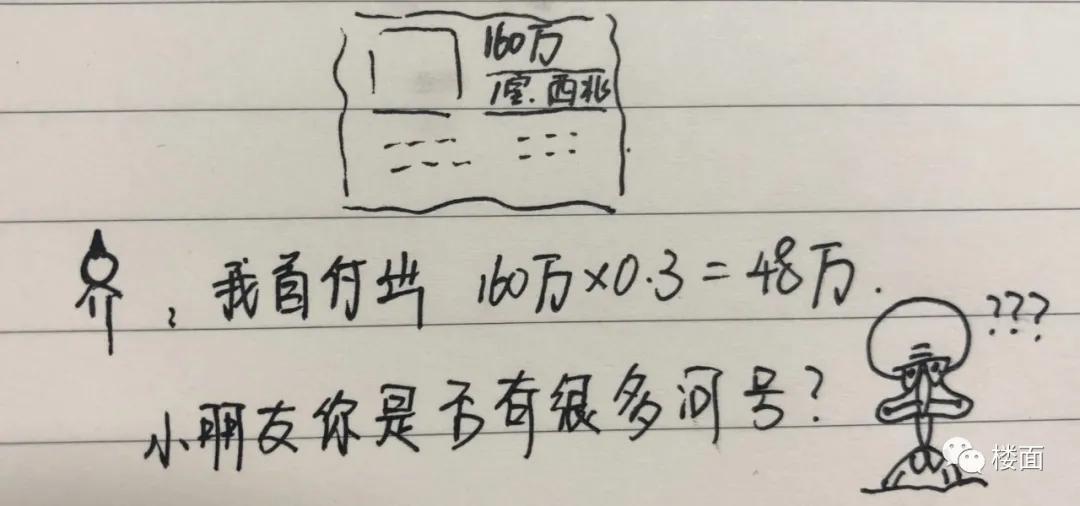 160万
1室.西北
，我首付出 160万×0.3=48万.
???
小朋友你是否有很多问号?
楼面